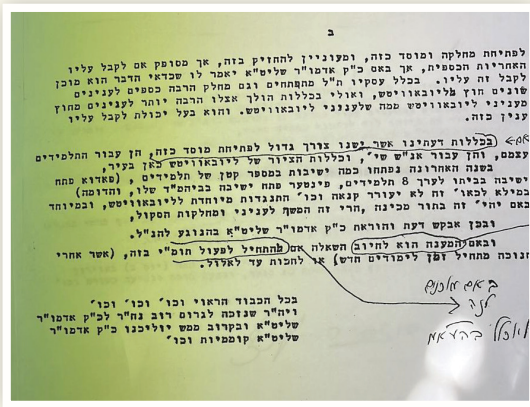 ב
לפתיחת מחלקה ומוסד כזה, ומעוניין להחזיק בזה, אך מסופק אם לקבל עליו
האחריות הכספית, אך באם כ"ק אדמו"ר שליט"א יאמר לו שכדאי הדבר הוא מוכן
לקבל זה עליו. בכלל עסקיו ת"ל מתפתחים וגם מחלק הרבה כספים לענינים
שונים חוץ מליובאוויטש, ואולי בכללות הולך אצלו הרבה יותר לענינים מחוץ
מעניני ליובאוויטש ממה שלעניני ליובאוויטש. והוא בעל יכולת לקבל עליו
ענין כזה.
בכללות דעתינו אשר ישנו צורך גדול לפתיחת מוסד כזה, הן עבור התלמידים
עצמם, והן עבור אנ"ש שי', וכללות הציור של ליובאוויטש כאן בעיר,
בשנה האחרונה נפתחו כמה ישיבות במספר קטן של תלמידים, (פאדוא פתח
ישיבה בביתו לערך 8 תלמידים, פינטער פתח ישיבה בביהמ"ד שלו, והדומה)
במילא לכאו' זה לא יעורר קנאה וכו' התנגדות מיוחדת לליובאוויטש, ובמיוחד
באם יהי' זה בתור מכינה, הרי זה המשך לעניני ומחלקות הסקול,
ובכן אבקש דעת והוראת כ"ק אדמו"ר שליט"א בהנוגע להנ"ל.
ובאם המענה הוא לחיוב השאלה אם להתחיל לפעול תומ"י בזה, (אשר אחרי
חנוכה מתחיל זמן לימודים חדש) או לחכות עד לאלול.
באם מוכנים
לזה
בכל הכבוד הראוי וכו' וכו' וכו'
ויה"ר שנזכה לגרום רוב נח"ר לכ"ק אדמו"ר
שליט"א ובקרוב ממש יוליכנו כ"ק אדמו"ר
שליט"א קוממיות וכו'